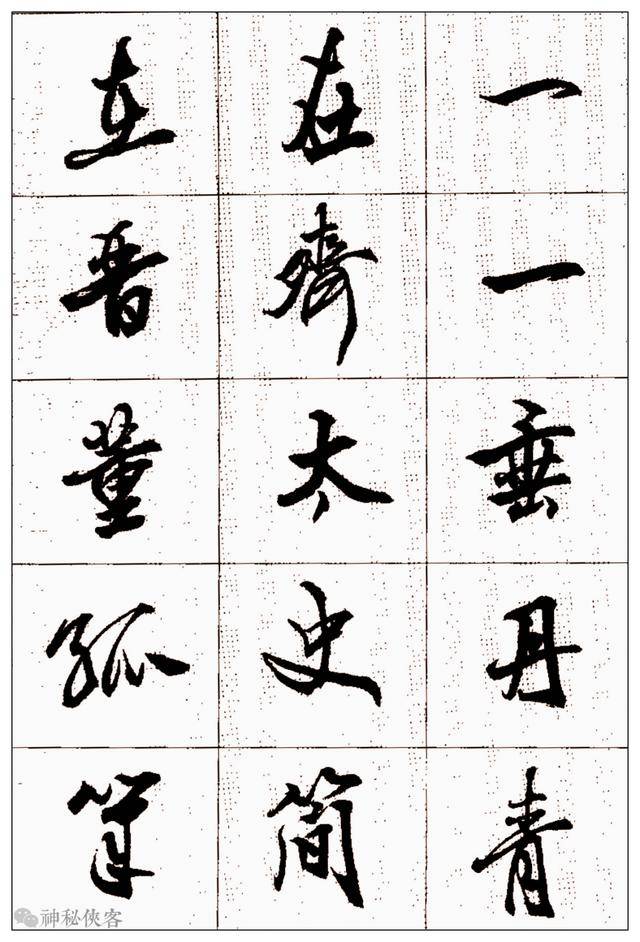 一一垂丹青
在齊太史簡
在晉董狐筆
神秘俠客